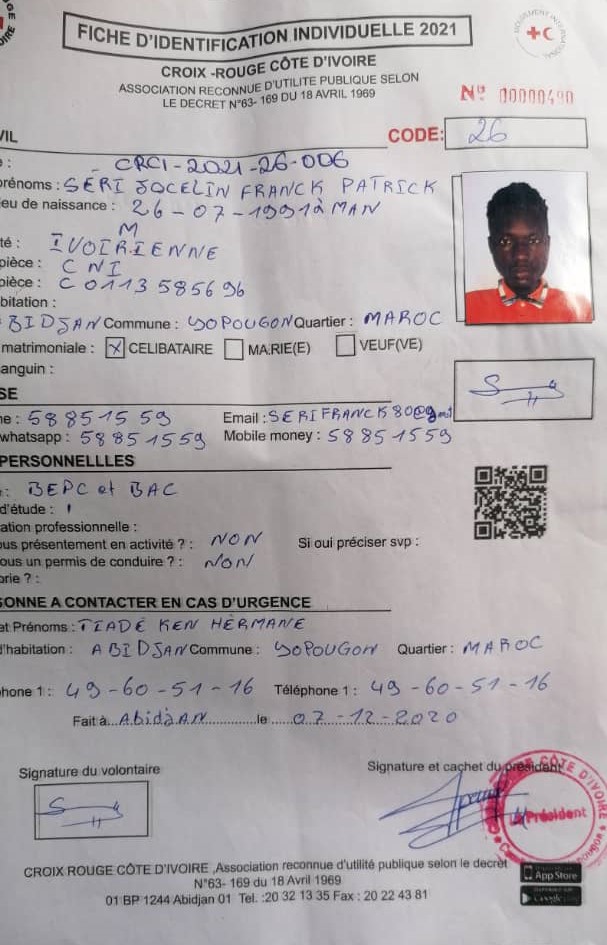 FICHE D'IDENTIFICATION INDIVIDUELLE 2021
CROIX -ROUGE CÔTE D'IVOIRE
ASSOCIATION RECONNUE D'UTILITE PUBLIQUE SELON
LE DECRET N°63- 169 DU 18 AVRIL 1969
N° 00000490
VIL
CODE: 26
: CRCI-2021-26-006
rénoms : SERI JOCELIN FRANCK PATRICK
eu de naissance : 26-07-1991 à MAN
M
té : IVOIRIENNE
pièce : CNI
pièce : C 0113 5856 96
bitation :
BIDJAN Commune : YOPOUGON Quartier : MAROC
matrimoniale : X CELIBATAIRE MARIE(E) VEUF(VE)
anguin :
SE
ne : 58851559 Email : SERIFRANCK80@gmail
whatsapp : 58851559 Mobile money : 58851559
PERSONNELLLES
: BEPC et BAC
d'étude :
ation professionnelle :
ous présentement en activité ? : NON Si oui préciser svp :
ous un permis de conduire ? : NON
orie ? :
SONNE A CONTACTER EN CAS D'URGENCE
et Prénoms : TIADE KEN HERMANE
d'habitation : ABIDJAN Commune : YOPOUGON Quartier : MAROC
hone 1 : 49-60-51-16 Téléphone 1 : 49-60-51-16
Fait à...AbidjAN..........le.....07-12-2020
Signature du volontaire
Signature et cachet du président
CÔTE D'IVOIRE
Le Président
CROIX ROUGE CÔTE D'IVOIRE ,Association reconnue d'utilité publique selon le decret
N°63- 169 du 18 Avril 1969
01 BP 1244 Abidjan 01 Tel. :20 32 13 35 Fax : 20 22 43 81
App Store
Google